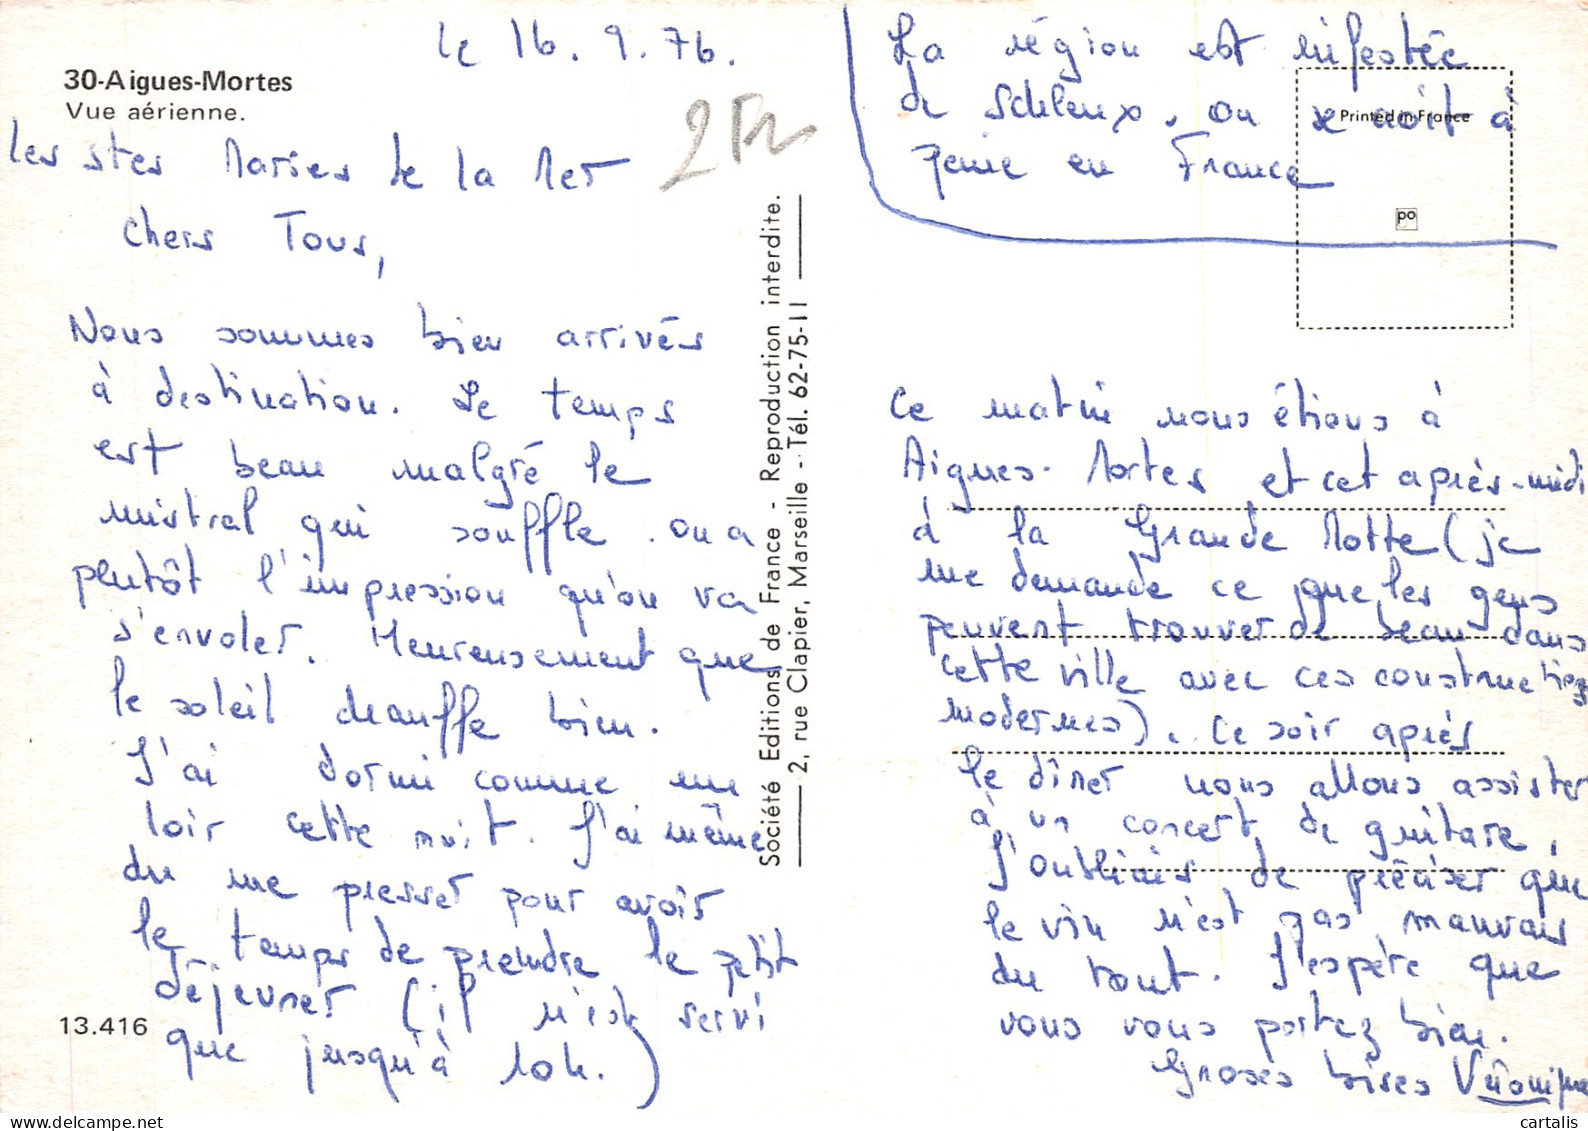 30-Aigues-Mortes
Vue aérienne.
le 16.9.76.
Les Stes Maries de la Mer
Chers Tous,
Nous sommes bien arrivés
à destination. Le temps
est beau malgré le
mistral qui souffle. on a
plutôt l'impression qu'on va
s'envoler. Heureusement que
le soleil chauffe bien.
J'ai dormi comme un
loir cette nuit. J'ai même
du me presser pour avoir
le temps de prendre le petit
déjeuner (il n'est servi
que jusqu'à 10h.)
13.416
2Fr
Société Editions de France - Reproduction interdite.
2, rue Clapier, Marseille - Tél. 62-75-11
La région est infestée
de Schleux, on se croit à
peine en France
Printed in France
po
Ce matin nous étions à
Aigues-Mortes et cet après-midi
à la Grande Motte (je
me demande ce que les gens
peuvent trouver de beau dans
cette ville avec ces constructions
modernes). Ce soir après
le dîner nous allons assister
à un concert de guitare.
J'oubliais de préciser que
le vin n'est pas mauvais
du tout. J'espère que
vous vous portez bien.
Grosses bises Véronique
cartalis